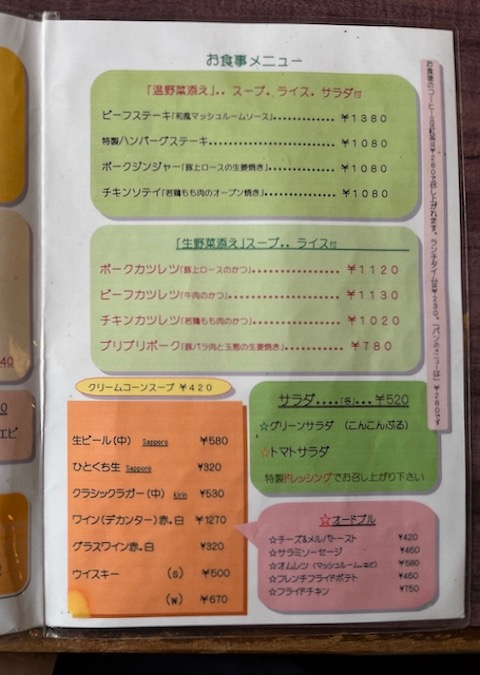 お食事メニュー
「温野菜添え」‥スープ．ライス．サラダ付
ビーフステーキ「和風マッシュルームソース」‥‥‥‥‥‥‥ ￥1380
特製ハンバーグステーキ‥‥‥‥‥‥‥‥‥‥‥ ￥1080
ポークジンジャー「豚上ロースの生姜焼き」‥‥‥‥‥‥‥ ￥1080
チキンソテイ「若鶏もも肉のオーブン焼き」‥‥‥‥‥‥‥ ￥1080
「生野菜添え」スープ‥ライス付
ポークカツレツ「豚上ロースのかつ」‥‥‥‥‥‥‥ ￥1120
ビーフカツレツ「牛肉のかつ」‥‥‥‥‥‥‥‥‥ ￥1130
チキンカツレツ「若鶏もも肉のかつ」‥‥‥‥‥‥‥ ￥1020
プリプリポーク「豚バラ肉と玉葱の生姜焼き」‥‥‥‥‥ ￥780
お食後のコーヒー
￥280で召し上がれます。ランチタイム￥230。「パンのメニューは」￥280です
クリームコーンスープ ￥420
生ビール（中） Sapporo ￥580
ひとくち生 Sapporo ￥320
クラシックラガー（中） kirin ￥530
ワイン（デカンター）赤．白 ￥1270
グラスワイン赤．白 ￥320
ウイスキー （s） ￥500
（w） ￥670
サラダ‥‥「各」‥．￥520
☆グリーンサラダ （こんこんぶる）
☆トマトサラダ
特製ドレッシングでお召し上がり下さい
☆オードブル
☆チーズ&メルバトースト ￥420
☆サラミソーセージ ￥460
☆オムレツ（マッシュルーム．など） ￥580
☆フレンチフライドポテト ￥460
☆フライドチキン ￥750
40
0
エビ